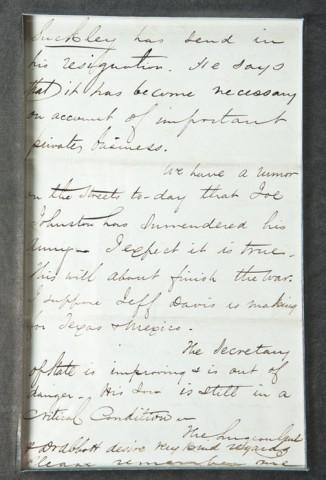 Buckley has send in
his resignation. He says
that it has become necessary
on account of important
private business.
We have a rumor
on the streets to-day that Joe
Johnston has surrendered his
army - I expect it is true -
This will about finish the war.
I suppose Jeff Davis is making
for Texas & Mexico.
The Secretary
of State is improving & is out of
danger. His Son is still in a
Critical Condition -
The Surgeon Genl
& Dr Abbott desire very kind regards
Please remember me